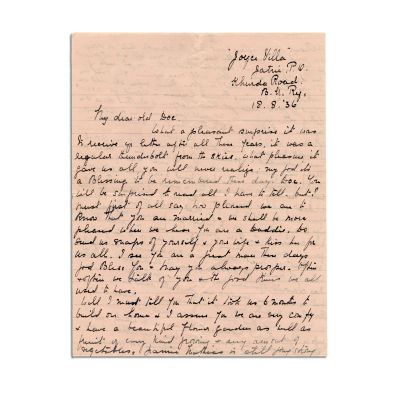 "Joyce Villa"
Jatni P.O.
Khurda Road.
B.N. Ry.
18.8.36
My dear old Doc.
What a pleasant surprise it was
to receive yr letter after all these years, it was a
regular thunderbolt from the skies. What pleasure it
gave us all you will never realise, my god its
a Blessing to be remembered these days Doc. You
will be surprised to read all I have to tell, but I
must first of all say how pleased we are to
know that you are married & we shall be more
pleased when we hear you are a daddie. Do
send us snaps of yourself & your wife & kiss her for
us all. I see you are a great man these days.
God Bless You & may you always prosper. Often
& often we of you & the good times we all
used to have.
Well I must tell you that it took us 6 months to
build our home & I assure you we are very comfy
& have a beautiful flower garden as well as
fruit of every kind growing & any amount of
vegetables. is still going strong